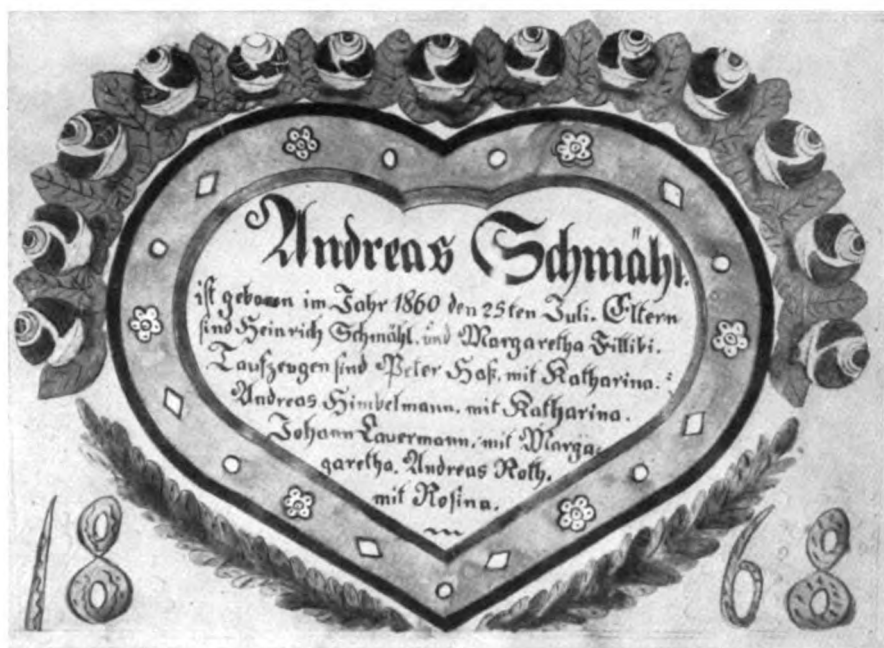 Andreas Schmähl.
ist geboren im Jahr 1860 den 25ten Juli. Eltern
sind Heinrich Schmähl. und Margaretha Fillibi.
Taufzeugen sind Peter Haß. mit Katharina.
Andreas Himbelmann. mit Katharina.
Johann Lauermann. mit Marga-
garetha. Andreas Roth.
mit Rosina.
18 68